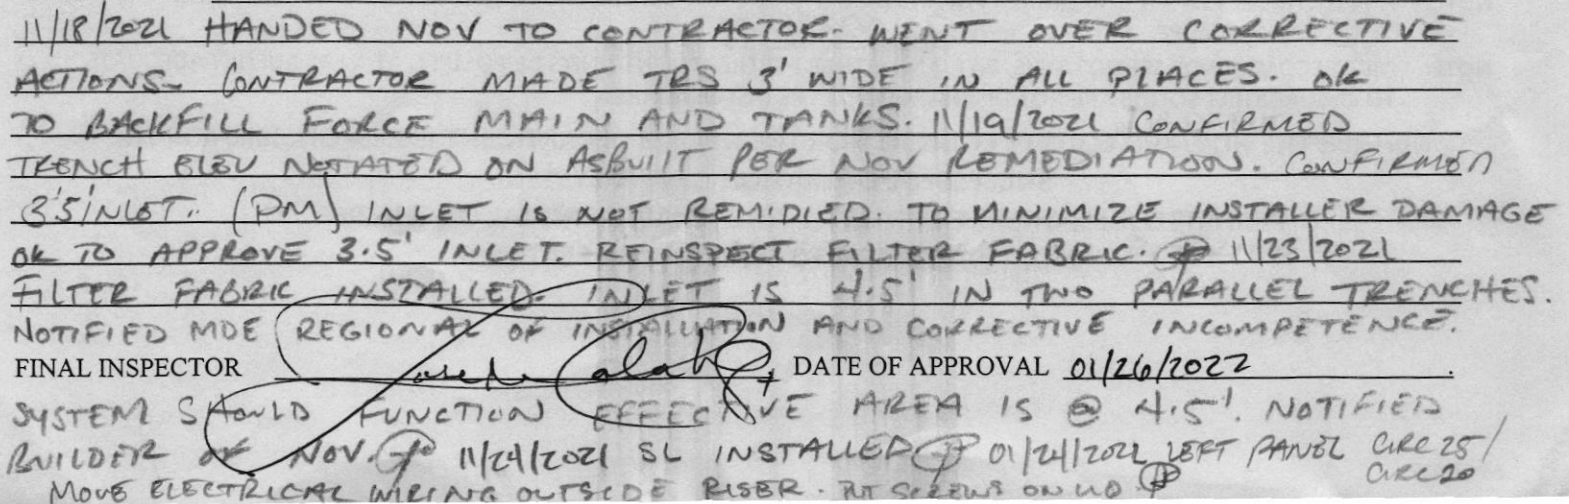 11/18/2021 HANDED NOV TO CONTRACTOR. WENT OVER CORRECTIVE
ACTIONS- CONTRACTOR MADE TRS 3' WIDE IN ALL PLACES. OK
TO BACKFILL FORCE MAIN AND TANKS. 11/19/2021 CONFIRMED
TRENCH ELEV NOTATED ON ASBUILT PER NOV REMEDIATION. CONFIRMED
3'5 INLET.. (PM) INLET IS NOT REMIDIED. TO MINIMIZE INSTALLER DAMAGE
OK TO APPROVE 3.5' INLET. REINSPECT FILTER FABRIC. 11/23/2021
FILTER FABRIC INSTALLED. INLET IS 4.5' IN TWO PARALLEL TRENCHES.
NOTIFIED MDE REGIONAL OF INSTALLATION AND CORRECTIVE INCOMPETENCE.
FINAL INSPECTOR DATE OF APPROVAL 01/26/2022
SYSTEM SHOULD FUNCTION EFFECTIVE AREA IS @ 4.5'. NOTIFIED
BUILDER OF NOV. 11/24/2021 SL INSTALLED 01/24/2022 LEFT PANEL CIRC 25/
CIRC 20
MOVE ELECTRICAL WIRING OUTSIDE RISER. PUT SCREWS ON LID